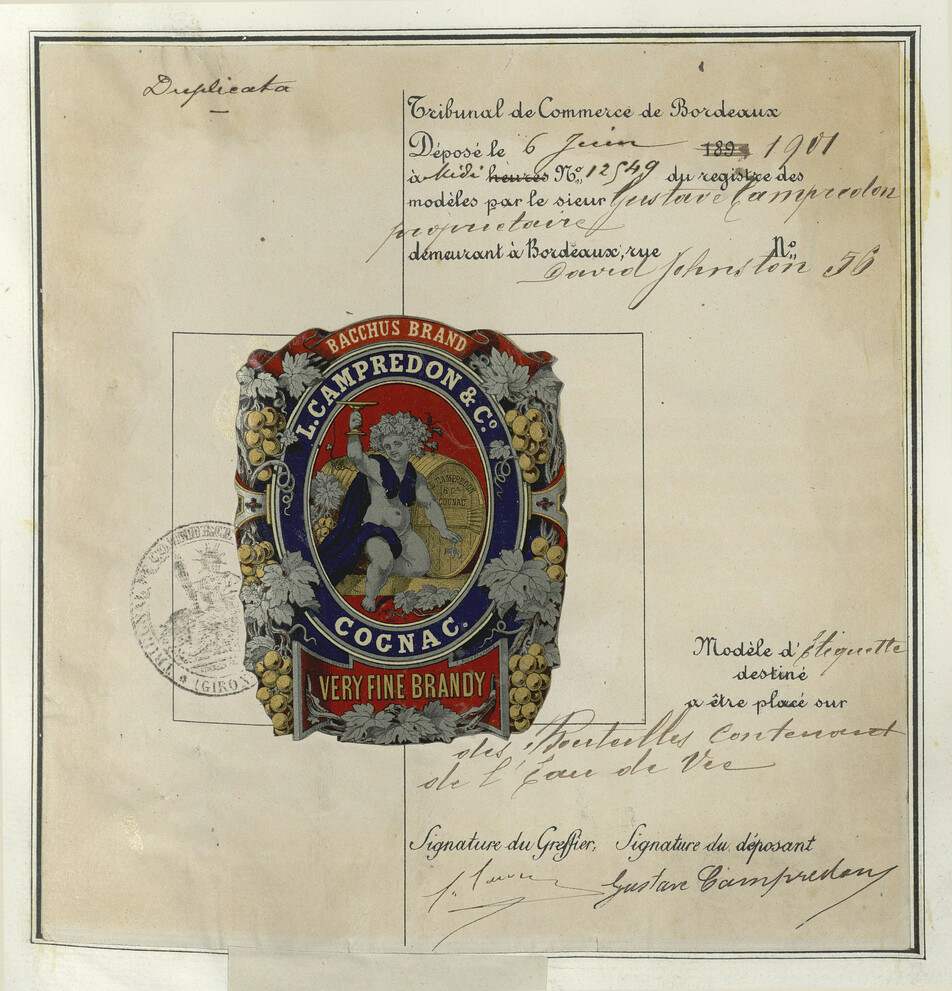 Duplicata
Tribunal de Commerce de Bordeaux
Déposé le 6 Juin 189 1901
à Midi heures N° 12549 du registre des
modèles par le sieur Gustave Campredon
propriétaire
demeurant à Bordeaux, rue N°
David Johnston 56
BACCHUS BRAND
L. CAMPREDON & Co
L. CAMPREDON
& Co
COGNAC
COGNAC.
VERY FINE BRANDY
TRIBUNAL DE COMMERCE
(GIRON
Modèle d'Étiquette
destiné
a être placé sur
des Bouteilles contenant
de l'Eau de Vie
Signature du Greffier, Signature du déposant
Gustave Campredon